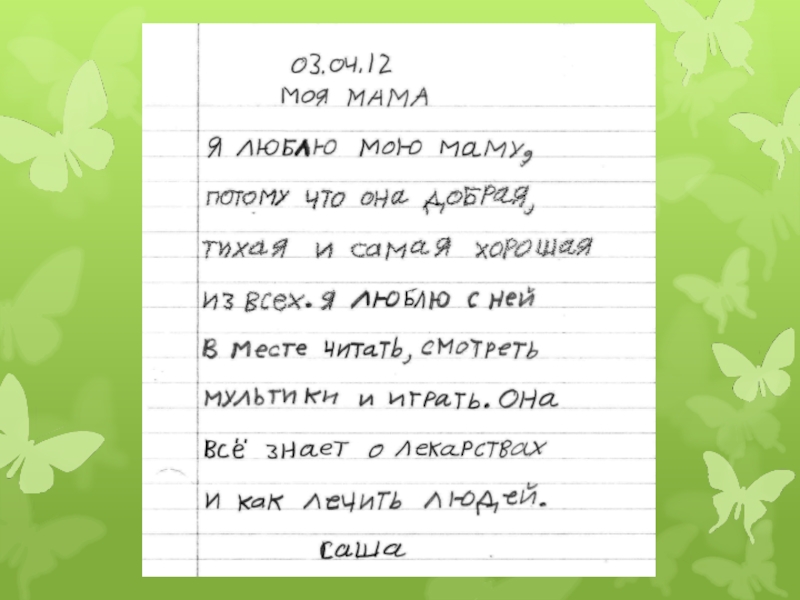 03.04.12
МОЯ МАМА
Я люблю мою маму,
потому что она добрая,
тихая и самая хорошая
из всех. Я люблю с ней
в месте читать, смотреть
мультики и играть. Она
всё знает о лекарствах
и как лечить людей.
Саша